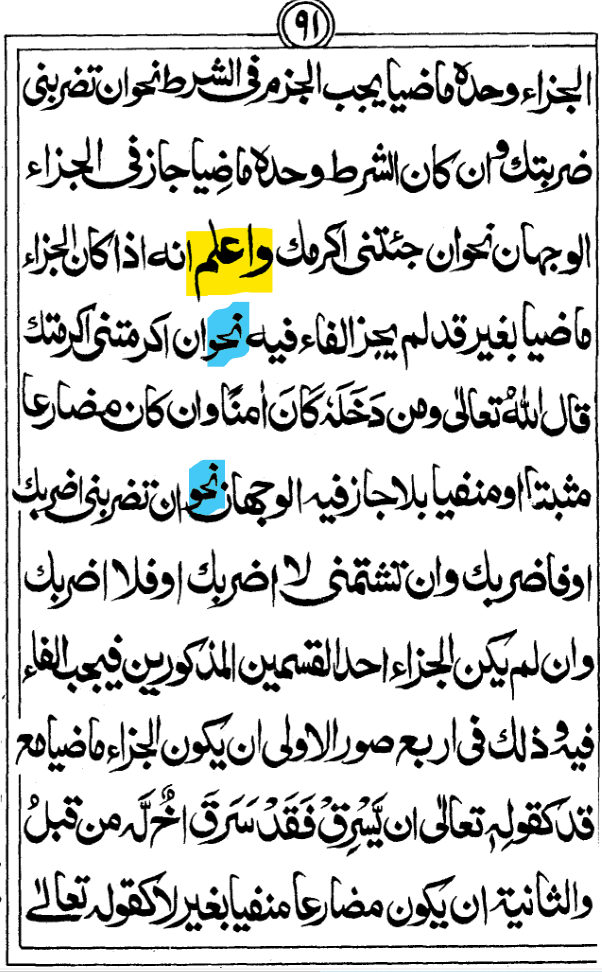 ٩١
الجزاء وحده ماضيا يجب الجزم فى الشرط نحو ان تضربنى
ضربتك وان كان الشرط وحده ماضِيا جاز فى الجزاء
الوجهان نحو ان جئتنى اكرمك واعلم انه اذا كان الجزاء
ماضيا بغير قد لم يجز الفاء فيه نحو ان اكرمتنى اكرمتك
قال اللهُ تعالى ومن دَخَلَهٗ كَانَ اٰمنًا وان كان مضارعا
مثبتا او منفيا بلا جاز فيه الوجهان نحو ان تضربنى اضربك
او فاضربك وان تشتمنى لا اضربك او فلا اضربك
وان لم يكن الجزاء احد القسمين المذكورين فيجب الفاء
فيه وذلك فى اربع صور الاولى ان يكون الجزاء ماضيا مع
قد كقولهٖ تعالى ان يَّسْرِقْ فَقَدْ سَرَقَ اَخٌ لَّه من قبلُ
والثانية ان يكون مضارعا منفيا بغير لا كقوله تعالىٰ